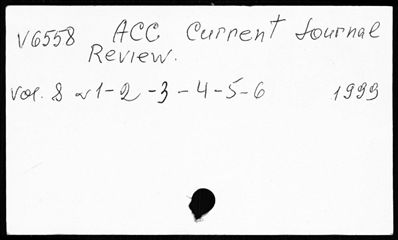 V6558 ACC Current Journal
Review.
vol. 8 N 1-2-3-4-5-6 1999